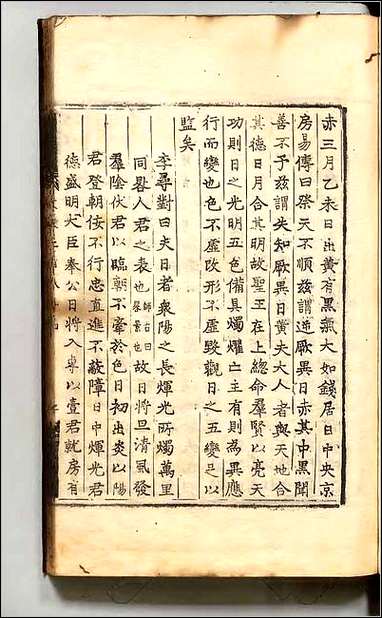 赤三月乙未日出黃有黑氣大如錢居日中央京
房易傳曰祭天不順茲謂逆厥異日赤其中黑聞
善不予茲謂失知厥異日黃夫大人者與天地合
其德日月合其明故聖王在上總命羣賢以亮天
功則日之光明五色備具燭燿亡主有則為異應
行而變也色不虛改形不虛毀觀日之五變足以
監矣
李尋對曰夫日者衆陽之長煇光所燭萬里
同晷人君之表也師古曰晷景也故日將旦清風發
羣陰伏君以臨朝不牽於色日初出炎以陽
君登朝佞不行忠直進不蔽障日中煇光君
德盛明大臣奉公日將入專以壹君就房有